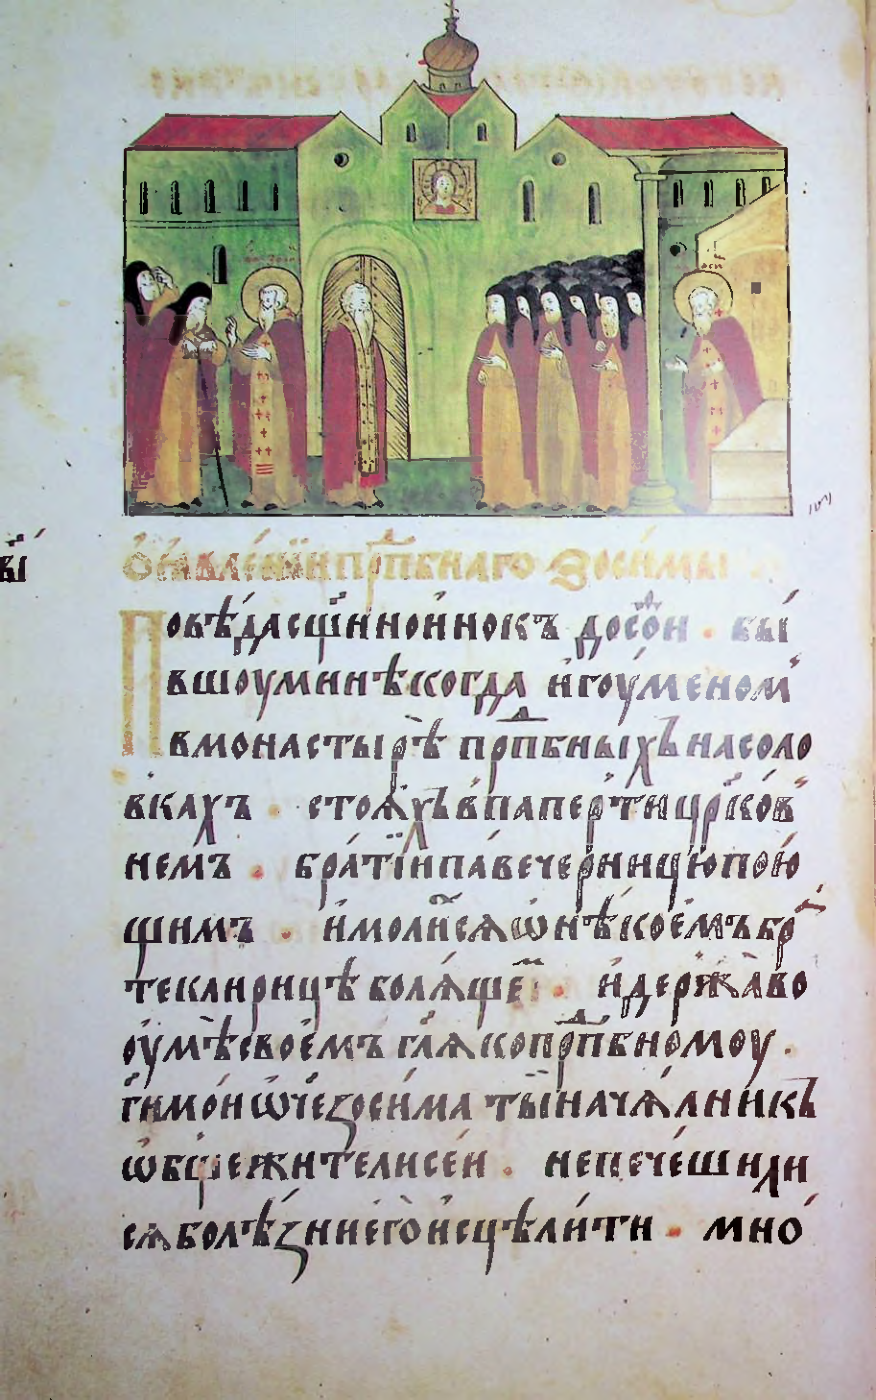 ві
Ѡ҆ ꙗ҆вле́нїи прпⷣбнаго Зоси́мы
Повѣ́да сщ҃їнноинокъ досїѳе́й . бы́
вшоу мнѣ когда и҆гоу́меном
в монасты́рѣ прпⷣбныхъ на соло
вкахъ . стоѧ́хъ в паперти црⷪ҇ко́в
нем́ъ . бра́тїи па́вечерницю пою́
щимъ . и҆ моли́хсѧ ѡ҆ нѣ́коемъ бра
те клирицѣ болѧ́щеⷨ . и҆ держа̀ во
оу҆мѣ̀ свое́мъ гл҃ѧ ко прпⷣбно́моу .
гⷭ҇и мо́й ѡ҆ч҃е зоси́ма ты̀ нача́лникъ
ѡ҆бщежи́телн се́й . не пече́ши ли
сѧ болѣ́зни є҆го̀ и҆сцѣли́ти . мно́